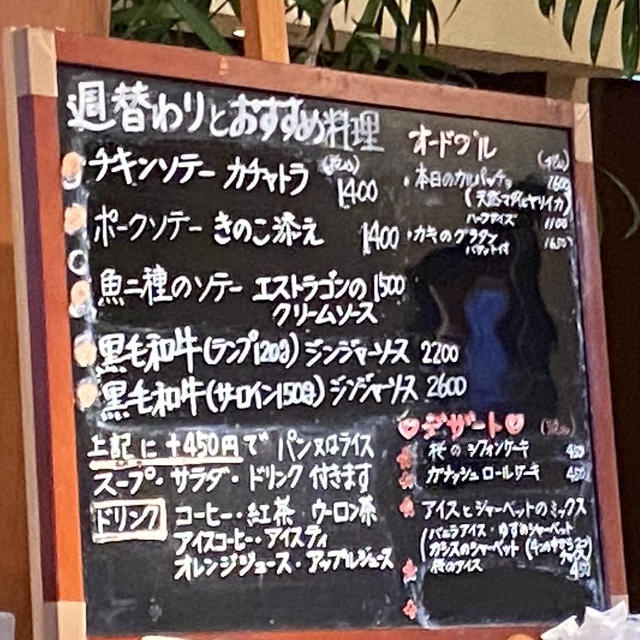 週替わりとおすすめ料理
チキンソテー カチャトラ (税込) 1400
ポークソテー きのこ添え 1400
魚二種のソテー エストラゴンの 1500
クリームソース
黒毛和牛(ランプ120g)ジンジャーソース 2200
黒毛和牛(サーロイン150g)ジンジャーソース 2600
上記に+450円で パン又はライス
スープ・サラダ・ドリンク 付きます
ドリンク コーヒー・紅茶 ウーロン茶
アイスコーヒー・アイスティ
オレンジジュース・アップルジュース
オードブル
(税込)
・本日のカルパッチョ 1600
(天然マダイとヤリイカ)
ハーフサイズ 1100
・カキのグラタン 1650
バゲット付
デザート (税込)
桜のシフォンケーキ 450
ガナッシュロールケーキ 450
アイスとシャーベットのミックス
(バニラアイス・ゆずのシャーベット
カシスのシャーベット (4つの中から2つ
桜のアイス 450